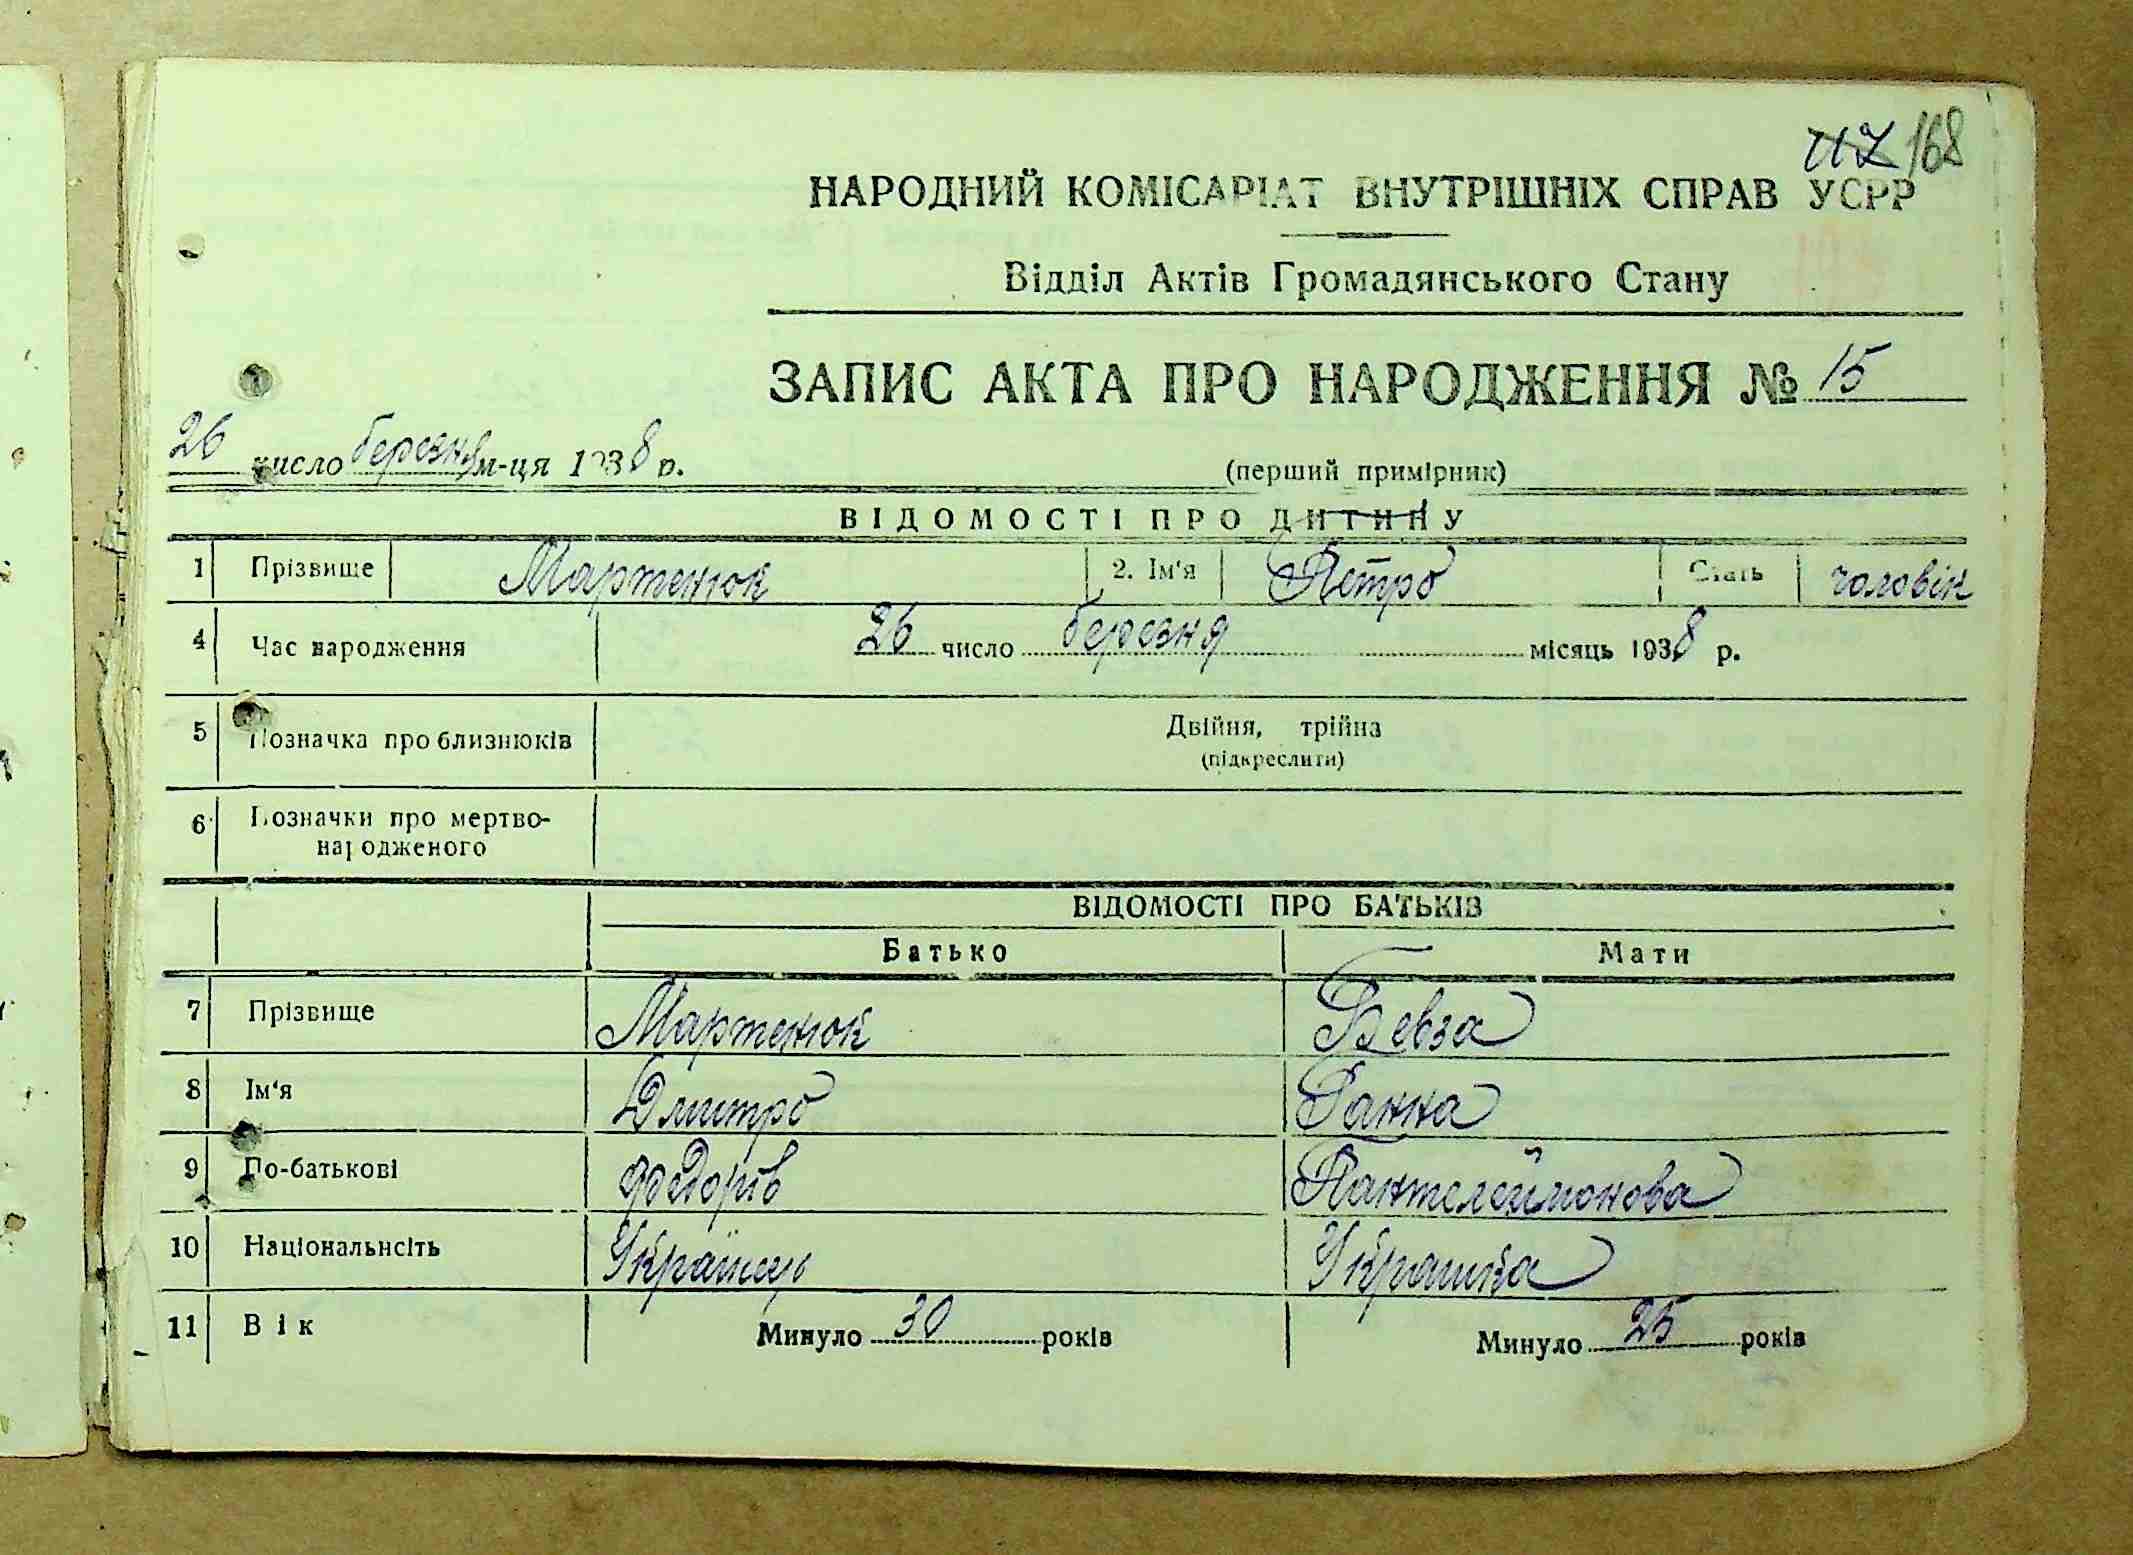 117 168
НАРОДНИЙ КОМІСАРІАТ ВНУТРІШНІХ СПРАВ УСРР
Відділ Актів Громадянського Стану
ЗАПИС АКТА ПРО НАРОДЖЕННЯ № 15
26 число березня м-ця 1938 р.
(перший примірник)
ВІДОМОСТІ ПРО ДИТИНУ
1 Прізвище Мартенюк 2. Ім'я Петро Стать чоловік
4 Час народження 26 число березня місяць 1938 р.
5 Позначка про близнюків Двійня, трійна
(підкреслити)
6 Позначки про мертво-
народженого
ВІДОМОСТІ ПРО БАТЬКІВ
Батько Мати
7 Прізвище Мартенюк Бевза
8 Ім'я Дмитро Ганна
9 По-батькові Федорів Пантелеймонова
10 Національнсіть Українець Українка
11 Вік Минуло 30 років Минуло 25 років